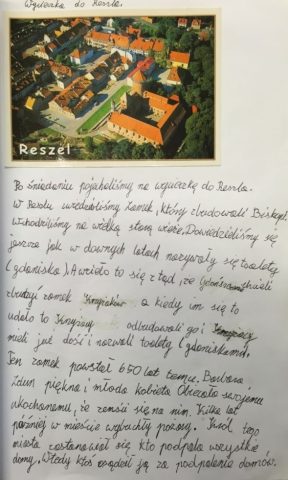 Wycieczka do Reszla.
Reszel
Po śniadaniu pojechaliśmy na wycieczkę do Reszla.
W Reszlu widzieliśmy Zamek, który zbudowali Biskupi.
Wchodziliśmy na wielką starą wieżę. Dowiedzieliśmy się
jeszcze jak w dawnych latach nazywały się toalety
(gdaniska). A wzięło to się z tąd, że Gdańszczanie chcieli
zburzyć zamek Krzyżaków a kiedy im się to
udało to Krzyżacy odbudowali go i Krzyżacy
mieli już dość i nazwali toalety (gdaniskami).
Ten zamek powstał 650 lat temu. Barbara
Zdun piękna i młoda kobieta Obiecała swojemu
ukochanemu, że zemści się na nim. Kilka lat
później w mieście wybuchły pożary. Król tego
miasta zastanawiał się kto podpala wszystkie
domy. Wtedy ktoś osądził ją za podpalenie domów.